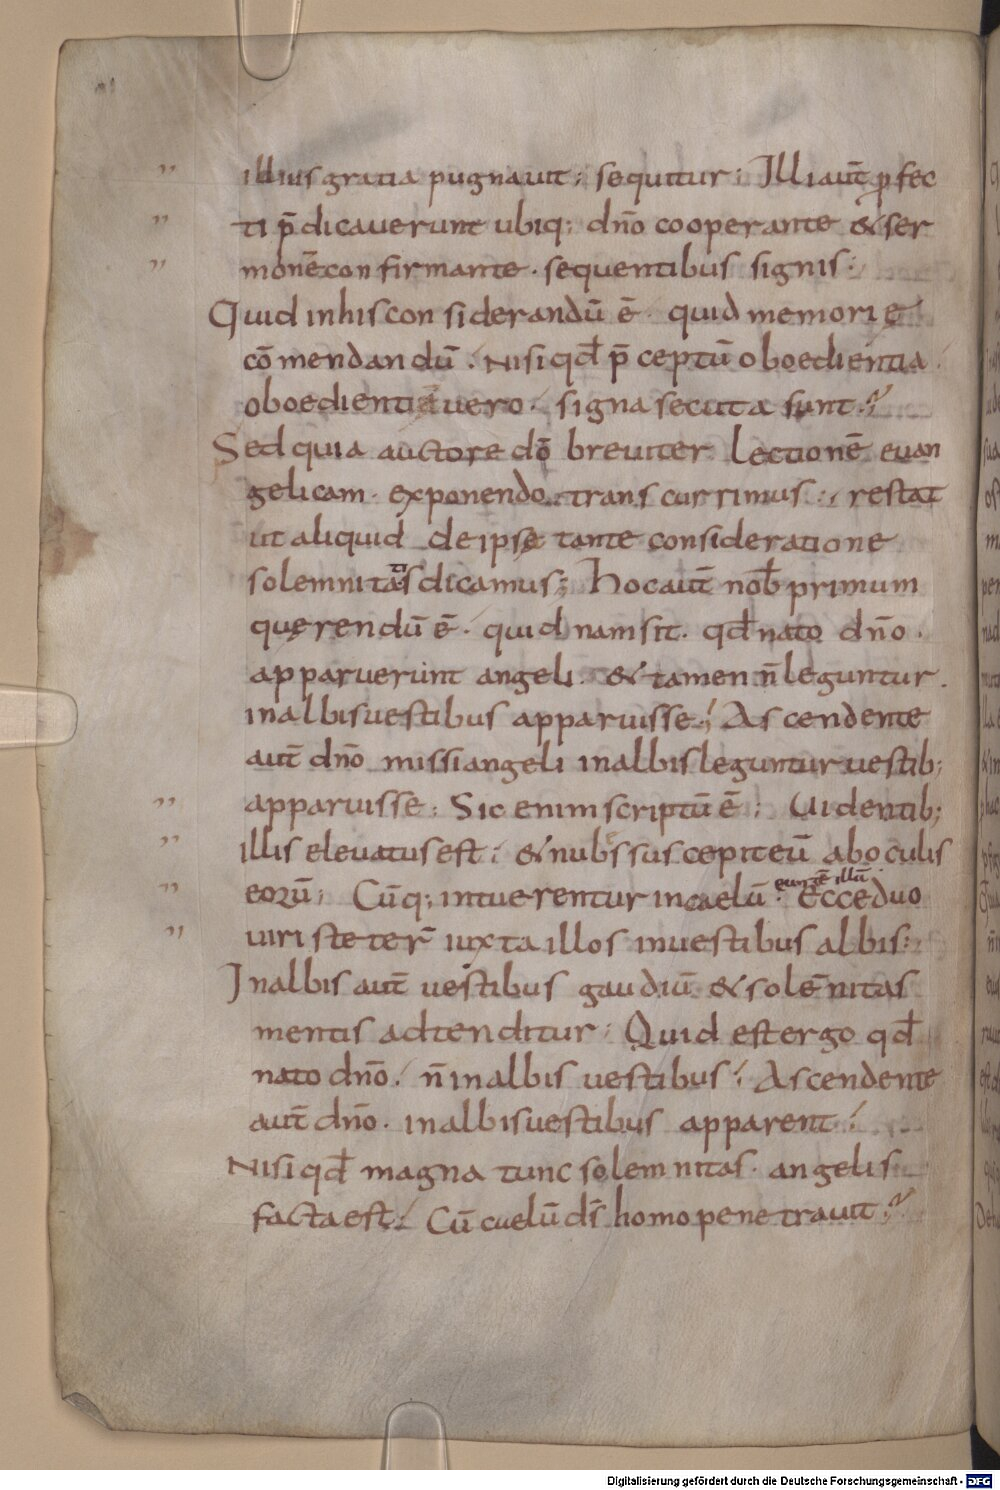 illius gratia pugnavit; sequitur; Illi aut̄ ꝓfec
ti p̄dicaverunt ubiq; dn̄o cooperante & ser
monē confirmante. sequentibus signis;
Quid in his considerandū ē. quid memorie
cōmendandū. Nisi qđ p̄ceptū oboedientia.
oboedientiā vero. signa secuta sunt.
Sed quia auctore dō breviter lectionē evan
gelicam. exponendo. transcurrimus; restat
ut aliquid de ipse tante consideratione
solemnitatis dicamus; Hoc aut̄ nob̄ primum
querendū ē. quid nam sit. qđ nato dn̄o.
apparuerunt angeli. & tamen n̄ leguntur.
in albis vestibus apparuisse; Ascendente
aut̄ dn̄o missi angeli in albis leguntur vestib;
apparuisse; Sic enim scriptū ē; Uidentib;
illis elevatus est; & nubes suscepit eū ab oculis
eorū; Cūq; intuerentur in caelū euntē illū. Ecce duo
viri steter̄ iuxta illos in vestibus albis;
In albis aut̄ vestibus gaudiū & solēnitas
mentis adtenditur; Quid est ergo qđ
nato dn̄o. n̄ in albis vestibus; Ascendente
aut̄ dn̄o. in albis vestibus apparent;
Nisi qđ magna tunc solemnitas. angelis
facta est; Cū caelū ds̄ homo penetravit;
Digitalisierung gefördert durch die Deutsche Forschungsgemeinschaft - DFG